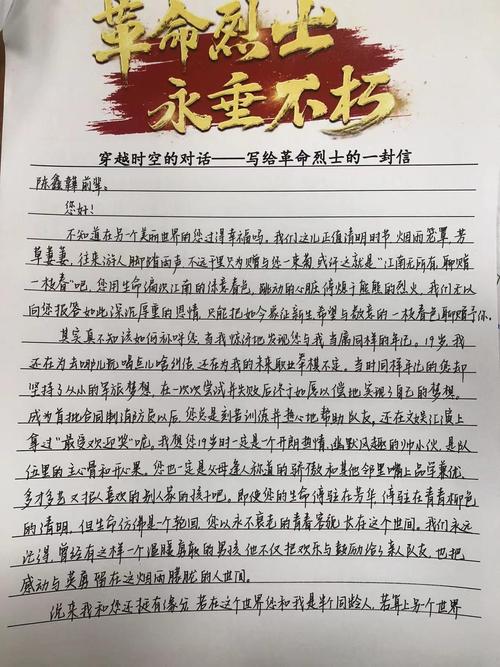 革命烈士
永垂不朽
穿越时空的对话——写给革命烈士的一封信
陈鑫韡前辈:
您好!
不知道在另一个美丽世界的您过得幸福吗。我们这儿正值清明时节,烟雨笼罩,芳
草萋萋,往来游人脚踏雨声,不远千里只为赠与您一束菊,或许这就是“江南无所有,聊赠
一枝春”吧。您用生命偏次江南的绿意春色,融动的心脏停烬于熊熊的烈火。我们无以
向您报答如此深沉厚重的恩情,只能把如今象征新生希望与敬意的一枝春色聊赠予你。
其实真不知该如何称呼您,当我惊讶地发现您与我当属同样的年纪。19岁,我
还在为去哪儿玩喝点儿啥纠结,还在为我的未来职业举棋不定。当时同样年纪的您却
坚持了从小的军旅梦想,在一次次尝试并失败后终于如愿以偿地实现了自己的梦想。
成为首批合同制消防员以后,您总是刻苦训练并热心地帮助队友,还在文娱汇演上
拿过“最受欢迎奖”呢。我想您19岁时一定是个开朗热情,幽默风趣的帅小伙,是队
伍里的主心骨和开心果。您也一定是父母逢人称道的骄傲和其他邻里嘴上品学兼优、
多才多艺又招人喜欢的别人家的孩子吧。即使您的生命停驻在芳华,停驻在青青柳色
的清明,但生命仿佛是个轮回,您以永不衰老的青春容貌长在这个世间。我们永远
记得,曾经有这样一个温暖勇敢的男孩,他不仅把欢乐与鼓励给了亲人队友,也把
感动与英勇留在这烟雨朦胧的人世间。
说来我和您还挺有缘分,若在这个世界您和我是半个同龄人,若算上另个世界